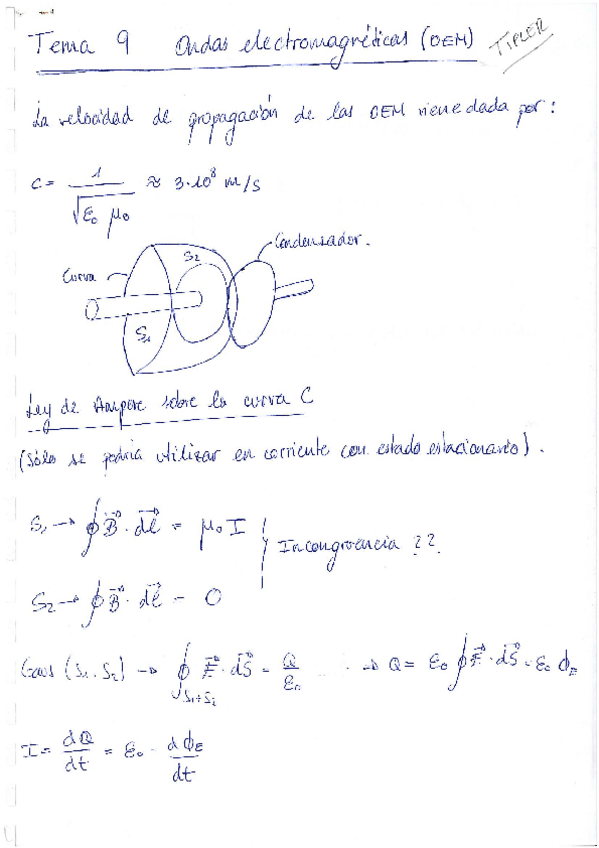 Tema 9 Ondas electromagnéticas (OEM) TIPLER
La velocidad de propagación de las OEM viene dada por:
c = 1 / √(ε₀ μ₀) ≈ 3·10⁸ m/s
Condensador.
S₂
Curva
S₁
Ley de Ampere sobre la curva C
(Sólo se podría utilizar en corriente con estado estacionario).
S₁ → ∮ B⃗ · dl⃗ = μ₀ I
Incongruencia ??
S₂ → ∮ B⃗ · dl⃗ = 0
Gaus (S₁. S₂) → ∮_{S₁+S₂} E⃗ · dS⃗ = Q/ε₀ ... → Q = ε₀ ∮ E⃗ · dS⃗ = ε₀ ϕ_E
I = dQ/dt = ε₀ · dϕ_E/dt